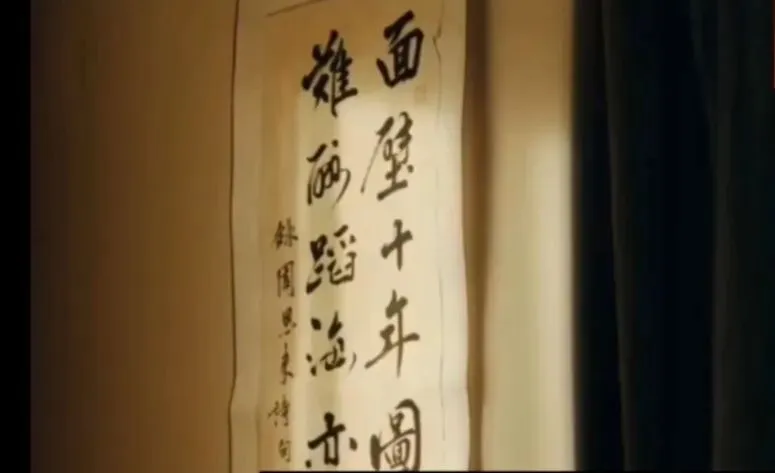 面壁十年圖
難酬蹈海亦
錄周恩來詩句